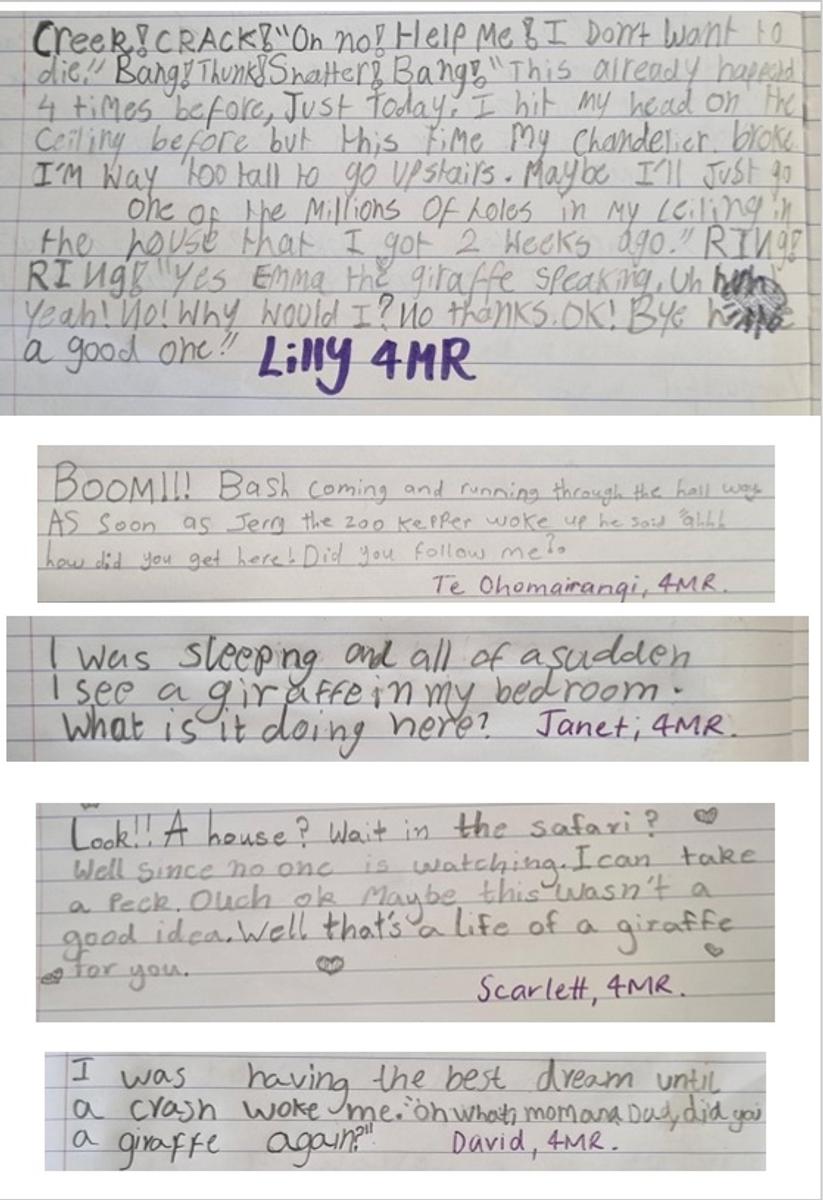 Creek! CRACK! "Oh no! Help Me! I Don't Want to
die!" Bang! Thunk! Snatter! Bang! "This already happend
4 times before, Just today. I hit my head on the
Ceiling before but this time My Chandelier broke
I'M Way too tall to go upstairs. Maybe I'll Just go
one of the Millions Of holes in my Ceiling in
the house that I got 2 Weeks ago." RING!
RING! "Yes Emma the giraffe speaking. Uh huh
Yeah! No! Why Would I? No thanks. OK! Bye
a good one!" Lilly 4MR
BOOM!!! Bash coming and running through the hall way
AS Soon as Jerry the zoo kepper woke up he said "ahhh
how did you get here! Did you follow me?
Te Ohomairangi, 4MR.
I was sleeping and all of a sudden
I see a giraffe in my bedroom.
What is it doing here? Janet, 4MR.
Look!! A house? Wait in the safari?
Well since no one is watching. I can take
a Peck. Ouch ok Maybe this wasn't a
good idea. Well that's a life of a giraffe
for you.
Scarlett, 4MR.
I was having the best dream until
a crash woke me. "oh what, mom and Dad, did you
a giraffe again?" David, 4MR.